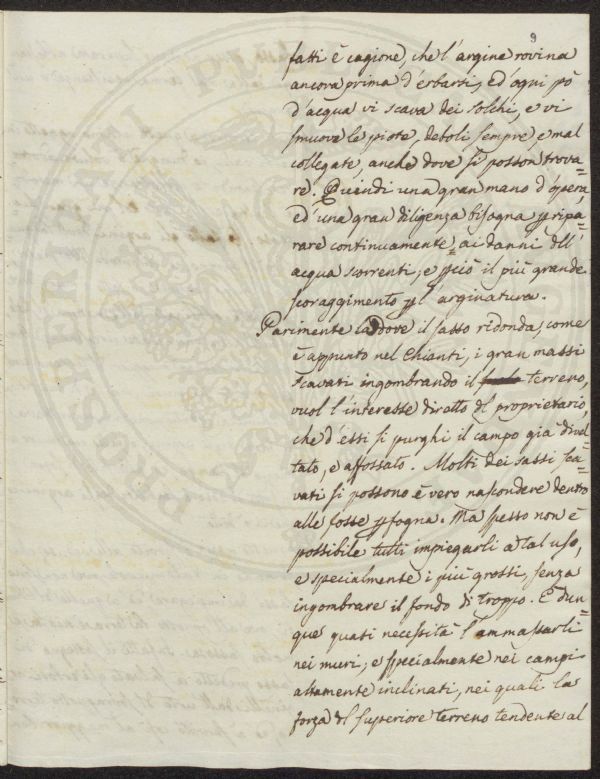 9
fatti è cagione, che l'argine rovina
ancora prima d'erbarsi, ed ogni pò
d'acqua vi scava dei solchi, e vi
smuove le piote, deboli sempre, e mal
collegate, anche dove si posson trova=
re. Quindi una gran mano d'opera,
ed una gran diligenza bisogna p ripa=
rare continuamente ai danni dll'
acqua scorrenti, e pciò il più grande
scoraggimento p l'arginatura.
Parimente ladove il sasso ridonda, come
è appunto nel Chianti, i gran massi
scavati ingombrando il terreno,
vuol l'interesse diretto dl proprietario,
che d'essi si purghi il campo già divel=
tato, e affossato. Molti dei sassi sca=
vati si possono è vero nascondere dentro
alle fosse p fogna. Ma spesso non è
possibile tutti impiegarli a tal uso,
e specialmente i più grossi, senza
ingombrare il fondo di troppo. E dun=
que quasi necessità l'ammassarli
nei muri, e specialmente nei campi
altamente inclinati, nei quali la
forza dl superiore terreno tendente al
PROSPERI